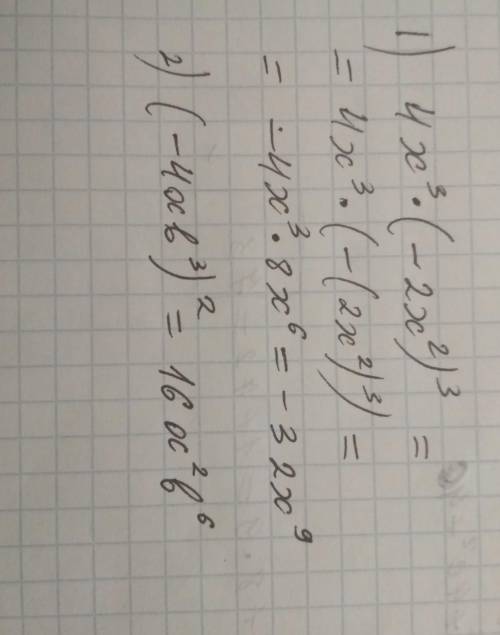 1) 4x³ · (-2x²)³ =
= 4x³ · (-(2x²)³) =
= -4x³ · 8x⁶ = -32x⁹
2) (-4ab³)² = 16a²b⁶